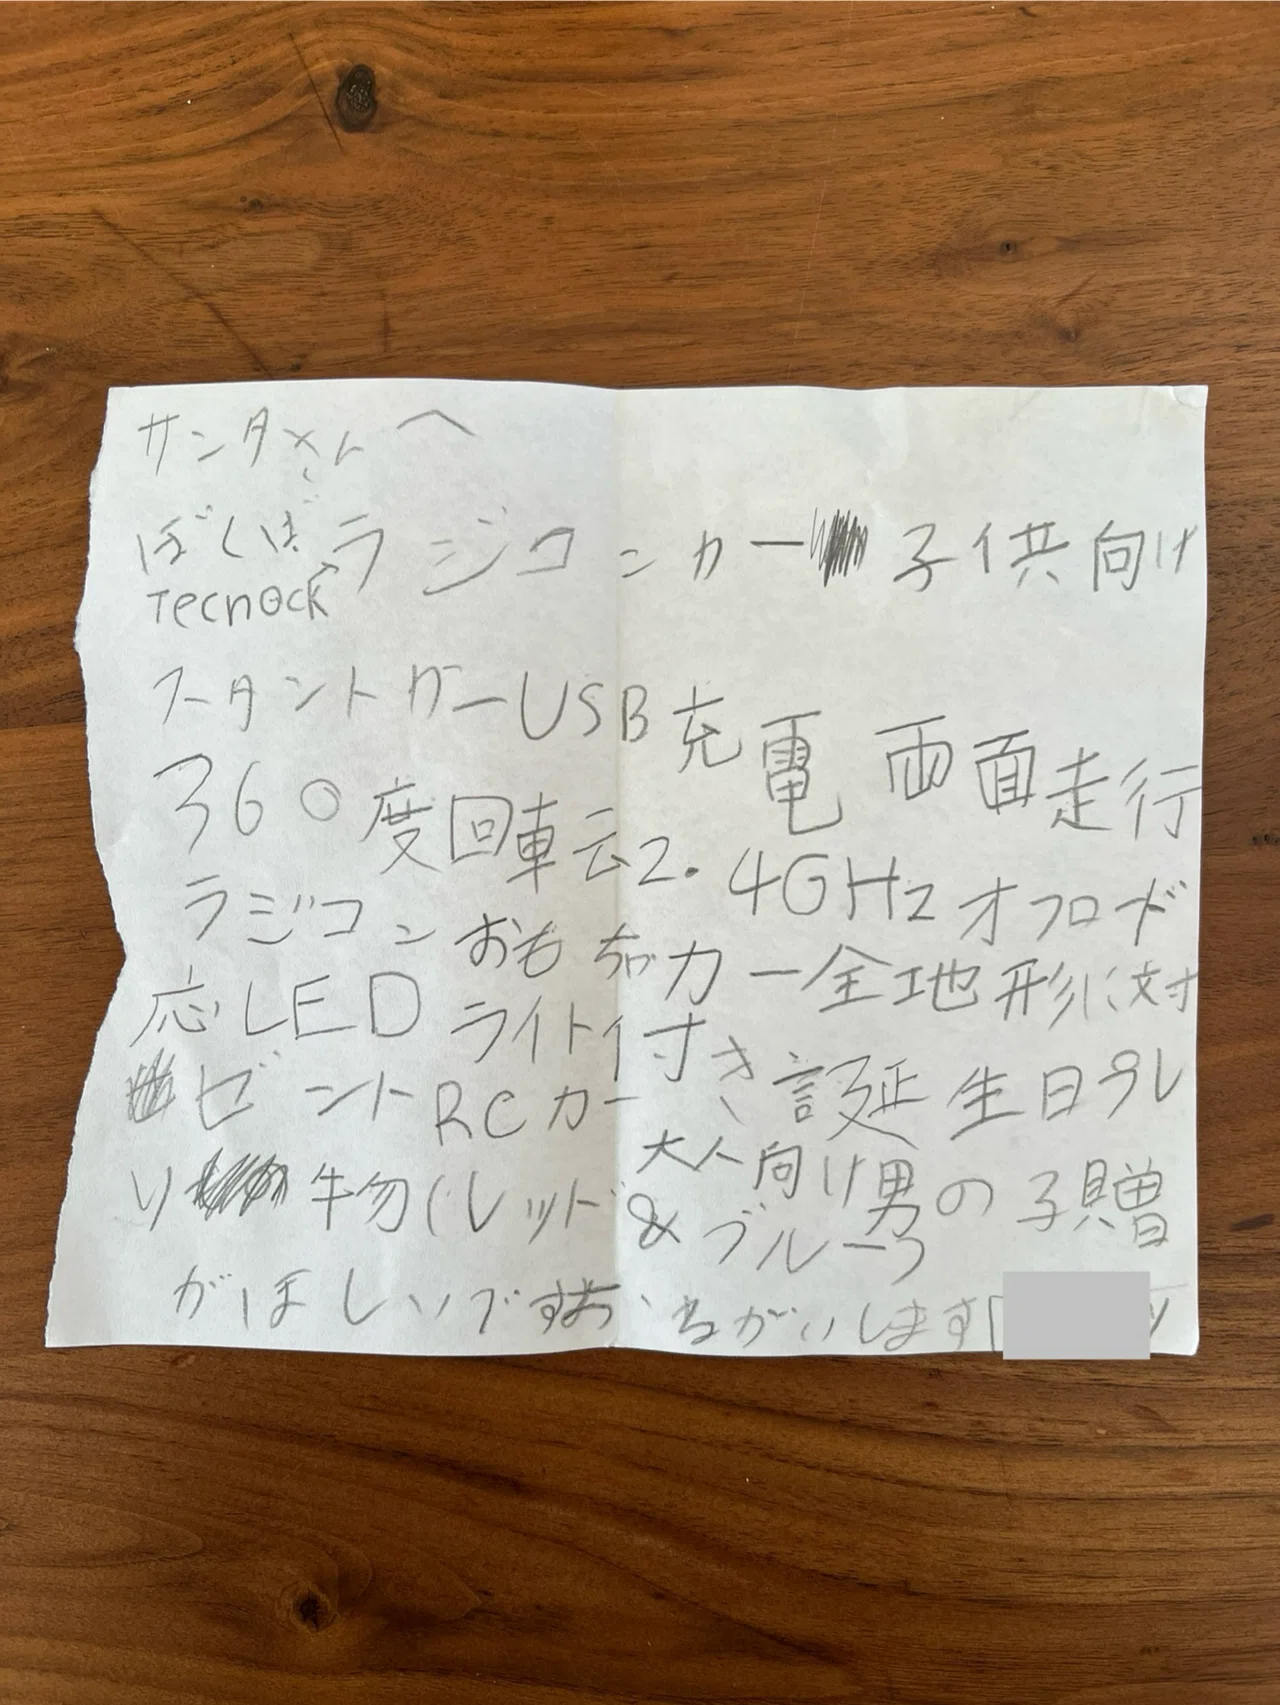 サンタさんへ
ぼくはラジコンカー子供向け
Tecnock
スタントカーUSB充電 両面走行
360度回転2.4GHzオフロード
ラジコンおもちゃカー全地形に対
応LEDライト付き誕生日プレ
ゼントRCカー大人向け男の子贈
り物(レッド&ブルー)
がほしいですおねがいします